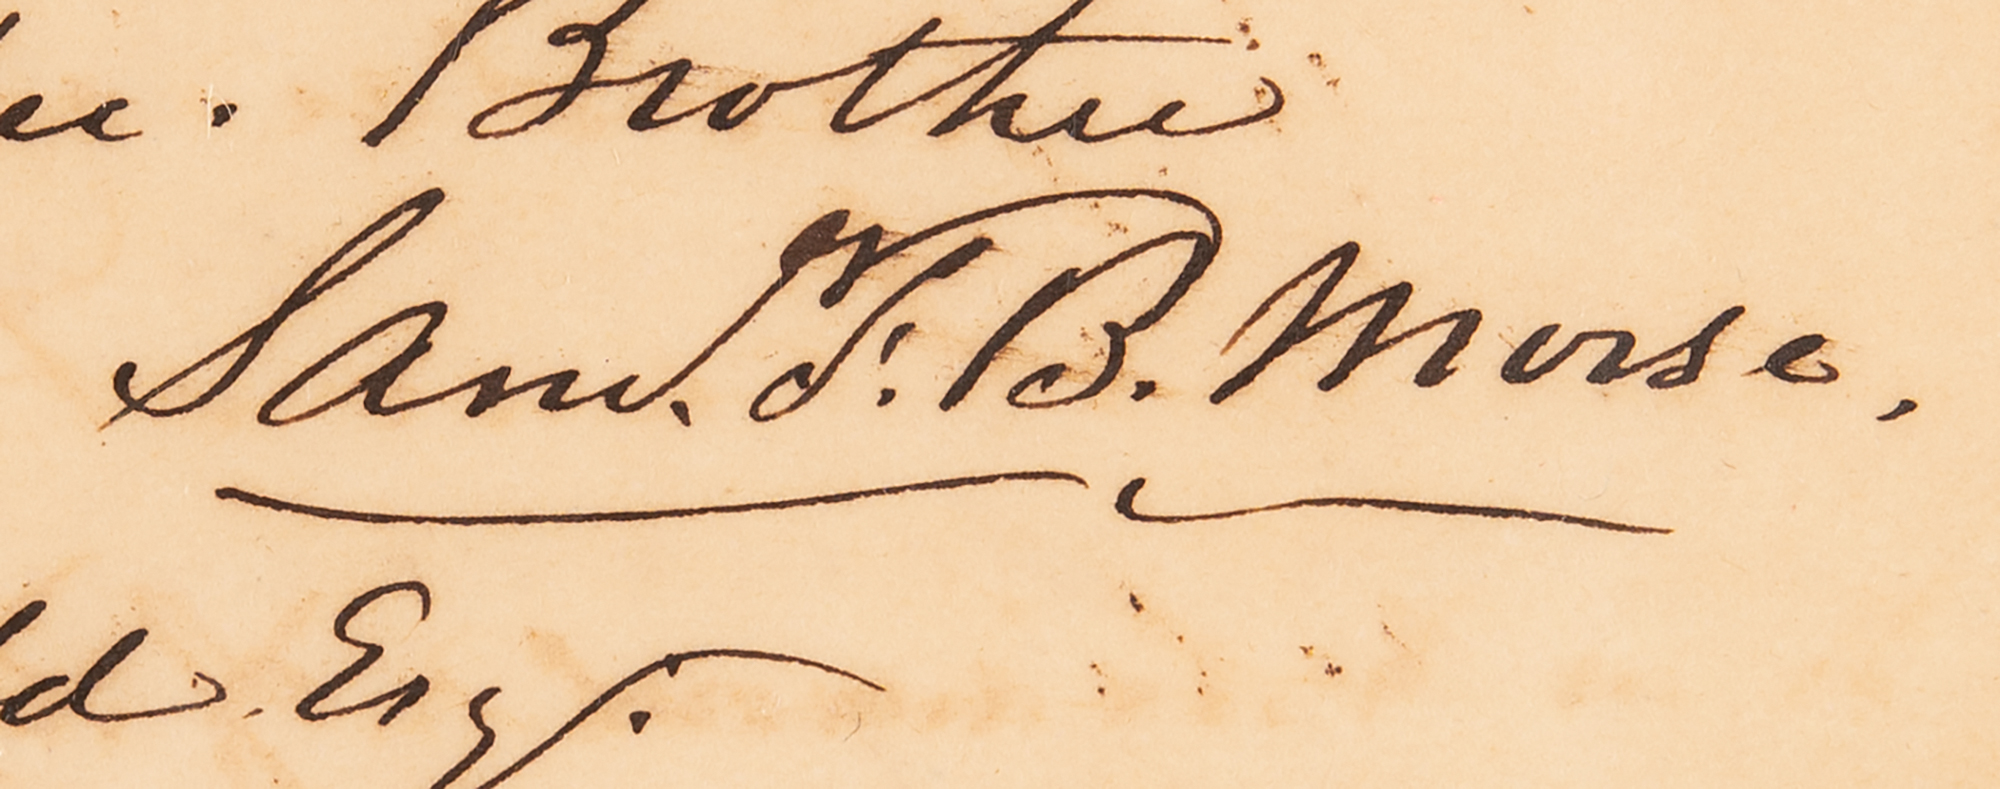 Brother
Sam. F. B. Morse,
Esq.